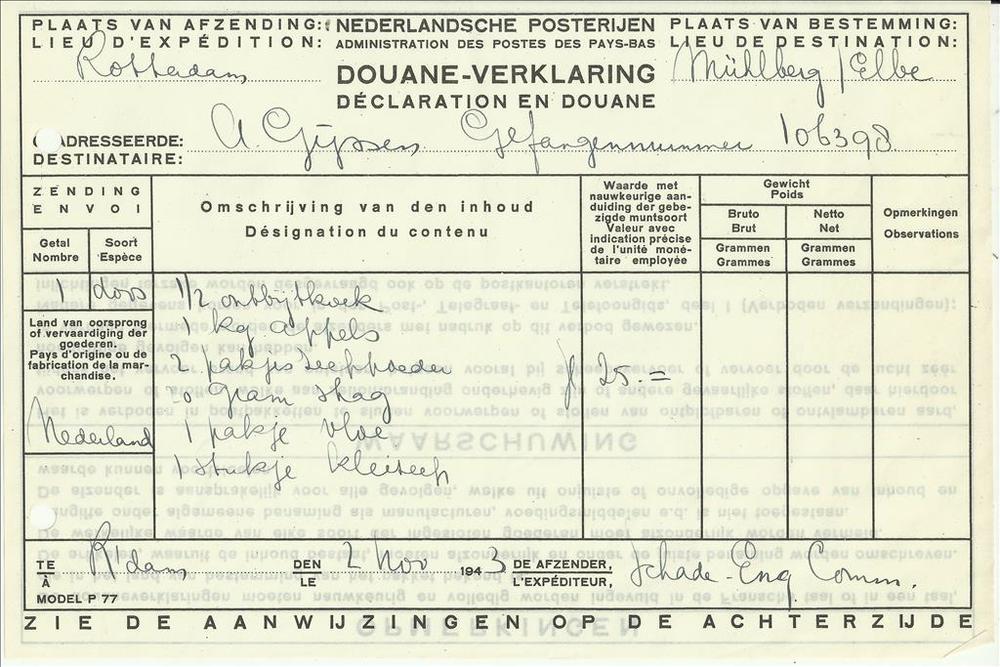 PLAATS VAN AFZENDING:
LIEU D'EXPÉDITION:
Rotterdam
NEDERLANDSCHE POSTERIJEN
ADMINISTRATION DES POSTES DES PAYS-BAS
DOUANE-VERKLARING
DÉCLARATION EN DOUANE
PLAATS VAN BESTEMMING:
LIEU DE DESTINATION:
Mühlberg / Elbe
ADRESSEERDE:
DESTINATAIRE:
A. Gijssen Gefangennummer 106398
ZENDING
ENVOI
Getal
Nombre
Soort
Espèce
Omschrijving van den inhoud
Désignation du contenu
Waarde met
nauwkeurige aan-
duiding der gebe-
zigde muntsoort
Valeur avec
indication précise
de l'unité moné-
taire employée
Gewicht
Poids
Bruto
Brut
Netto
Net
Grammen
Grammes
Grammen
Grammes
Opmerkingen
Observations
1 doos
1/2 ontbijtkoek
1 kg appels
2 pakjes zeeppoeder
gram shag
1 pakje vloe
1 stukje kleizeep
f 25.=
Land van oorsprong
of vervaardiging der
goederen.
Pays d'origine ou de
fabrication de la mar-
chandise.
Nederland
TE
À
R'dam
DEN
LE
2 Nov 1943
DE AFZENDER,
L'EXPÉDITEUR,
Schade-Enq Comm.
MODEL P 77
ZIE DE AANWIJZINGEN OP DE ACHTERZIJDE